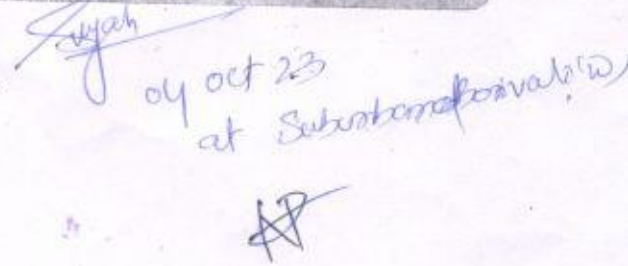 04 oct 23
at Suburban Borivali (W)
AP